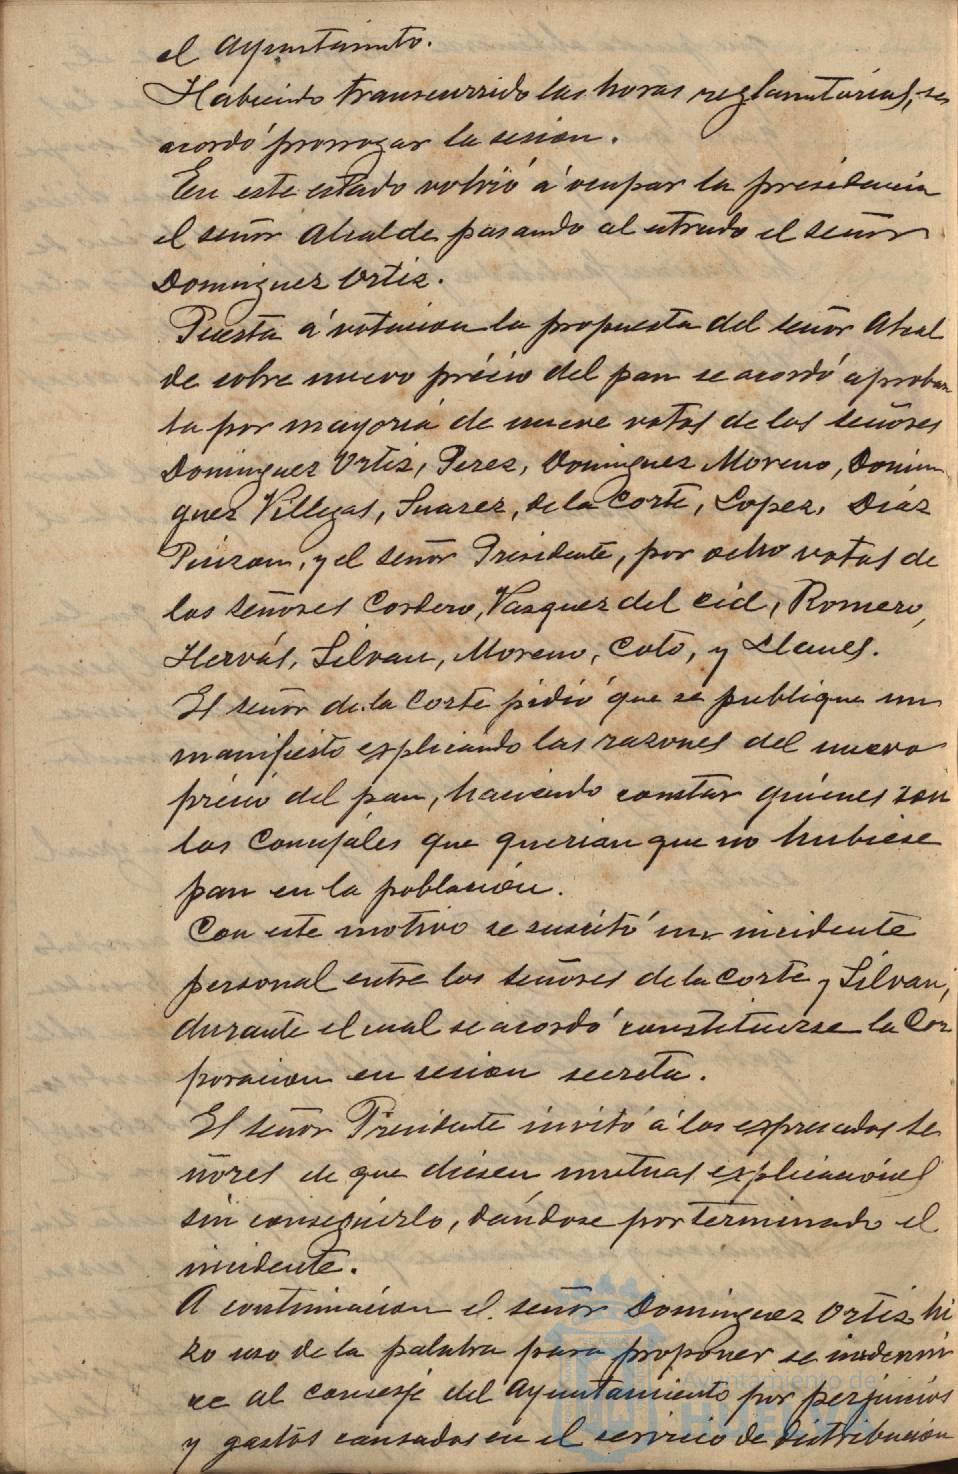 el Ayuntamiento.
Habiendo transcurrido las horas reglamentárias, se
acordó prorrogar la sesion.
En este estado volvió á ocupar la presidencia
el señor Alcalde pasando al estrado el señor
Dominguez Ortiz.
Puesta á votacion la propuesta del señor Alcal
de sobre nuevo précio del pan se acordó aprobar
la por mayoria de nueve votos de los señores
Dominguez Ortiz, Perez, Dominguez Moreno, Domin
guez Villegas, Suarez, de la Corte, Lopez, Diáz
Pinzon, y el señor Presidente, por ocho votos de
los señores Cordero, Vazquez del Cid, Romero,
Hervás, Silvan, Moreno, Coto, y Llanes.
El señor de la Corte pidió que se publique un
manifiesto esplicando las razones del nuevo
précio del pan, haciendo constar quiénes son
los Concejáles que querian que no hubiese
pan en la poblacion.
Con este motivo se suscitó un incidente
personal entre los señores de la Corte y Silvan,
durante el cual se acordó constituirse la Cor
poracion en sesion secreta.
El señor Presidente invitó á los espresados se
ñores de que diesen mutuas esplicaciónes
sin conseguirlo, dándose por terminado el
incidente.
A continuacion el señor Dominguez Ortiz hi
zo uso de la palabra para proponer se indemni
ce al conserje del Ayuntamiento por perjuicios
y gastos causados en el servicio de distribucion
Ayuntamiento de
HUELVA